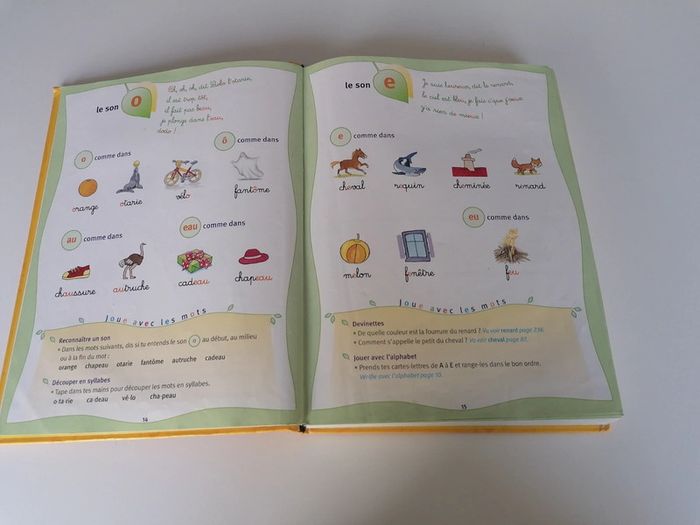 le son o
Oh, oh, oh, dit Lola l'otarie,
il est trop tôt,
il fait pas beau,
je plonge dans l'eau,
dodo !
o comme dans
ô comme dans
orange
otarie
vélo
fantôme
au comme dans
eau comme dans
chaussure
autruche
cadeau
chapeau
Joue avec les mots
Reconnaître un son
• Dans les mots suivants, dis si tu entends le son o au début, au milieu
ou à la fin du mot :
orange chapeau otarie fantôme autruche cadeau
Découper en syllabes
• Tape dans tes mains pour découper les mots en syllabes.
o·ta·rie ca·deau vé·lo cha·peau
14
le son e
Je suis heureux, dit le renard,
le ciel est bleu, je fais c'que j'veux
j'ai rien de mieux !
e comme dans
cheval
requin
cheminée
renard
eu comme dans
melon
fenêtre
feu
Joue avec les mots
Devinettes
• De quelle couleur est la fourrure du renard ? Va voir renard page 236.
• Comment s'appelle le petit du cheval ? Va voir cheval page 87.
Jouer avec l'alphabet
• Prends tes cartes-lettres de A à E et range-les dans le bon ordre.
Vérifie avec l'alphabet page 10.
15